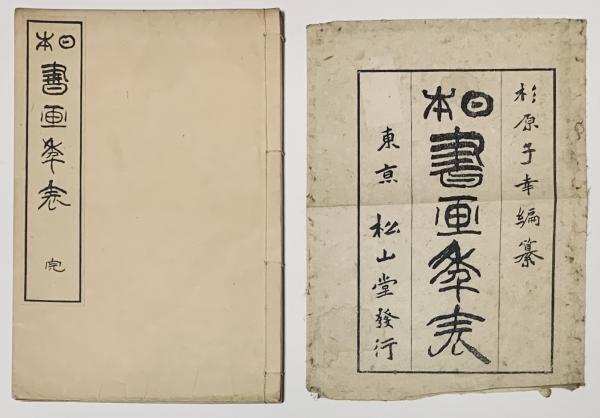 日本書画年表 完
杉原子幸編纂
日本書画年表
東亰 松山堂發行